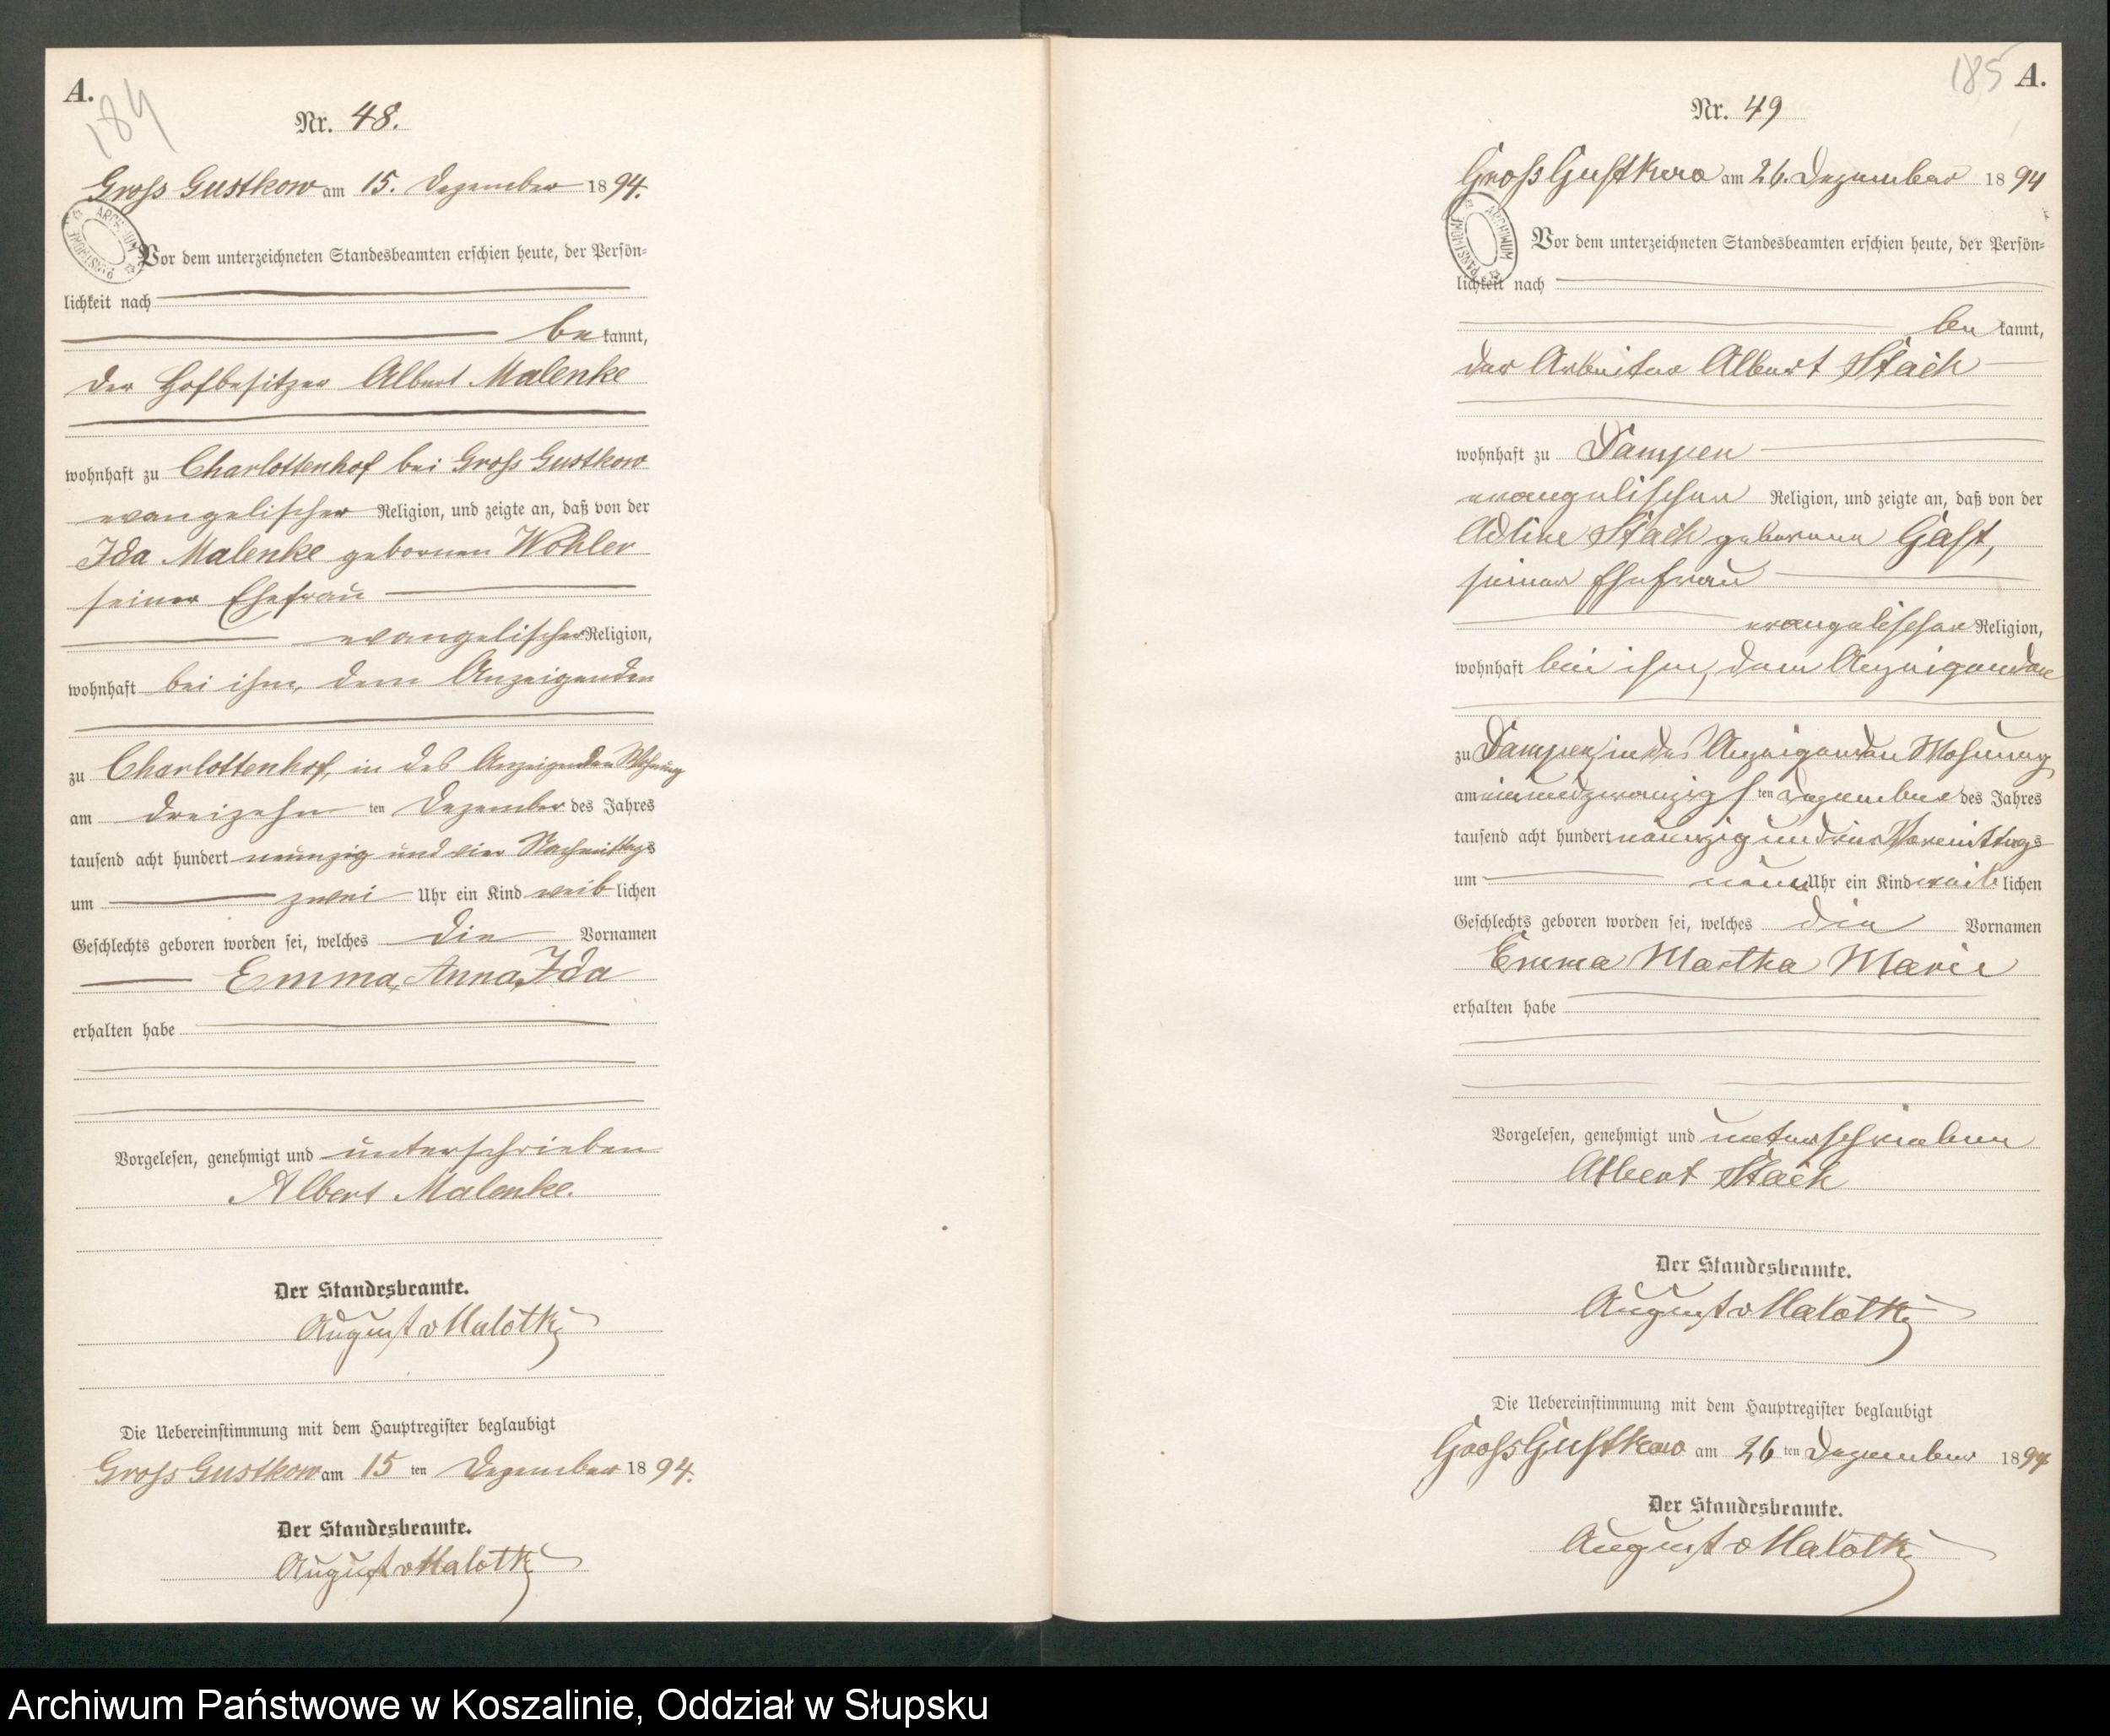 A.
184
Nr. 48.
Gross Gustkow am 15. Dezember 1894.
ARCHIWUM PAŃSTWOWE
Vor dem unterzeichneten Standesbeamten erschien heute, der Persön-
lichkeit nach
be kannt,
der Hofbesitzer Albert Malenke
wohnhaft zu Charlottenhof bei Gross Gustkow
evangelischer Religion, und zeigte an, daß von der
Ida Malenke gebornen Wohler
seiner Ehefrau
evangelischer Religion,
wohnhaft bei ihm, dem Anzeigenden
zu Charlottenhof, in des Anzeigenden Wohnung
am dreizehn ten Dezember des Jahres
tausend acht hundert neunzig und vier Nachmittags
um zwei Uhr ein Kind weib lichen
Geschlechts geboren worden sei, welches die Vornamen
Emma, Anna, Ida
erhalten habe
Vorgelesen, genehmigt und unterschrieben
Albert Malenke.
Der Standesbeamte.
August v Malotki
Die Uebereinstimmung mit dem Hauptregister beglaubigt
Gross Gustkow am 15 ten Dezember 1894.
Der Standesbeamte.
August v Malotki
185
A.
Nr. 49
Gross Gustkow am 26. Dezember 1894
ARCHIWUM PAŃSTWOWE
Vor dem unterzeichneten Standesbeamten erschien heute, der Persön-
lichkeit nach
be kannt,
der Arbeiter Albert Stach
wohnhaft zu Dampen
evangelischer Religion, und zeigte an, daß von der
Adline Stach geborene Gast,
seiner Ehefrau
evangelischer Religion,
wohnhaft bei ihm, dem Anzeigenden
zu Dampen, in des Anzeigenden Wohnung
am einundzwanzigs ten Dezember des Jahres
tausend acht hundert neunzig und vier Vormittags
um neun Uhr ein Kind weib lichen
Geschlechts geboren worden sei, welches die Vornamen
Emma Martha Marie
erhalten habe
Vorgelesen, genehmigt und unterschrieben
Albert Stach
Der Standesbeamte.
August v Malotki
Die Uebereinstimmung mit dem Hauptregister beglaubigt
Gross Gustkow am 26 ten Dezember 1894
Der Standesbeamte.
August v Malotki
Archiwum Państwowe w Koszalinie, Oddział w Słupsku